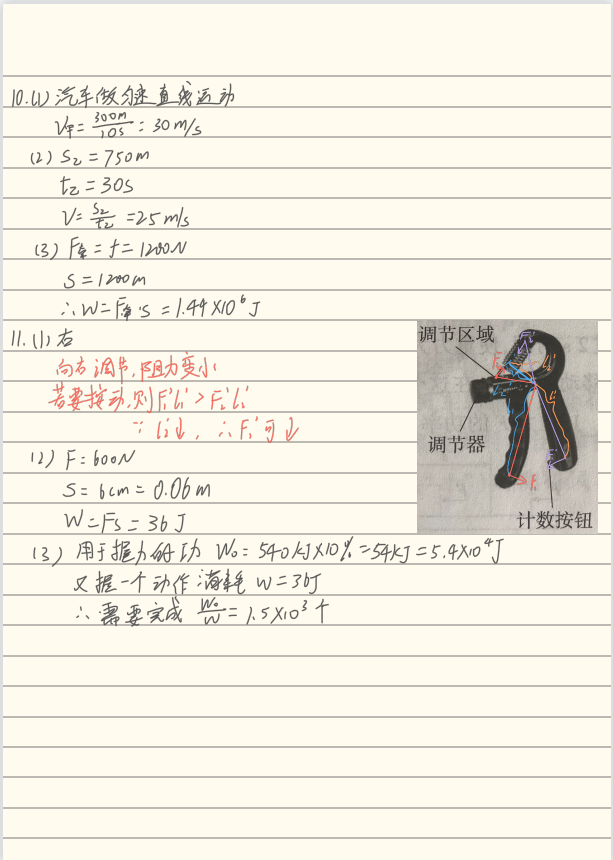 10.(1) 汽车做匀速直线运动
V甲=300m/10s=30m/s
(2) S乙=750m
t乙=30s
V=S乙/t乙=25m/s
(3) F牵=f=1200N
S=1200m
∴W=F牵·S=1.44×10⁶J
11.(1) 右
向右调节,阻力变小
若要按动,则F₁'l₁'>F₂'l₂'
∵l₂'↓,∴F₁'可↓
(2) F=600N
S=6cm=0.06m
W=FS=36J
(3) 用于握力的功 W₀=540kJ×10%=54kJ=5.4×10⁴J
又握一个动作消耗 W=36J
∴需要完成 W₀/W=1.5×10³个
调节区域
调节器
计数按钮
F₁